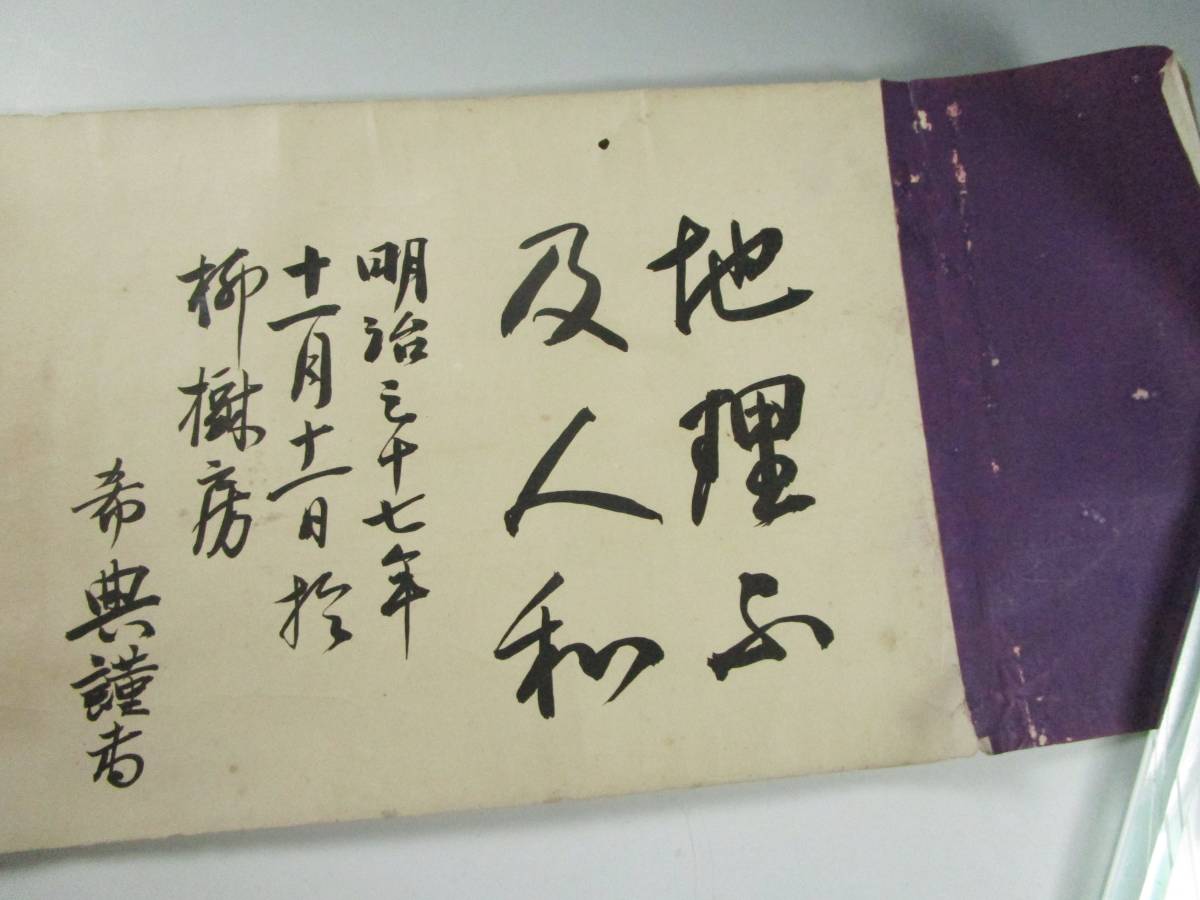 地理不
及人和
明治三十七年
十一月十一日於
柳樹房
希典謹書